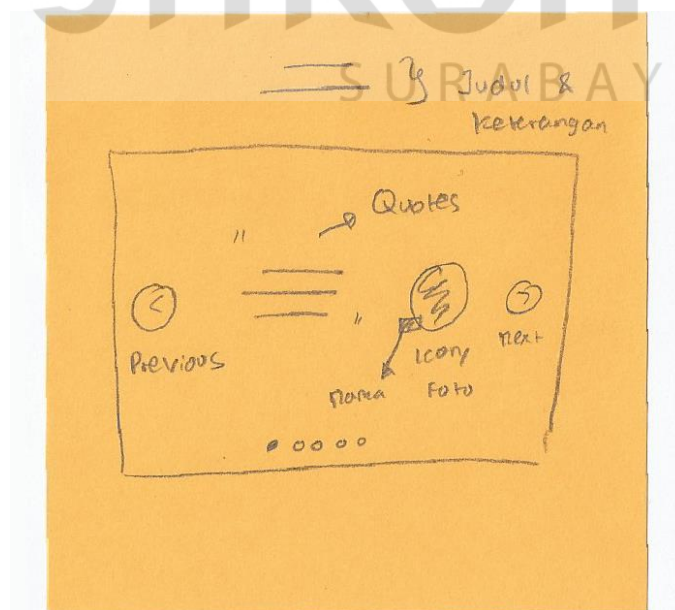 SURABAY
Judul &
Keterangan
Quotes
"
"
Previous
next
Icon
Foto
Nama